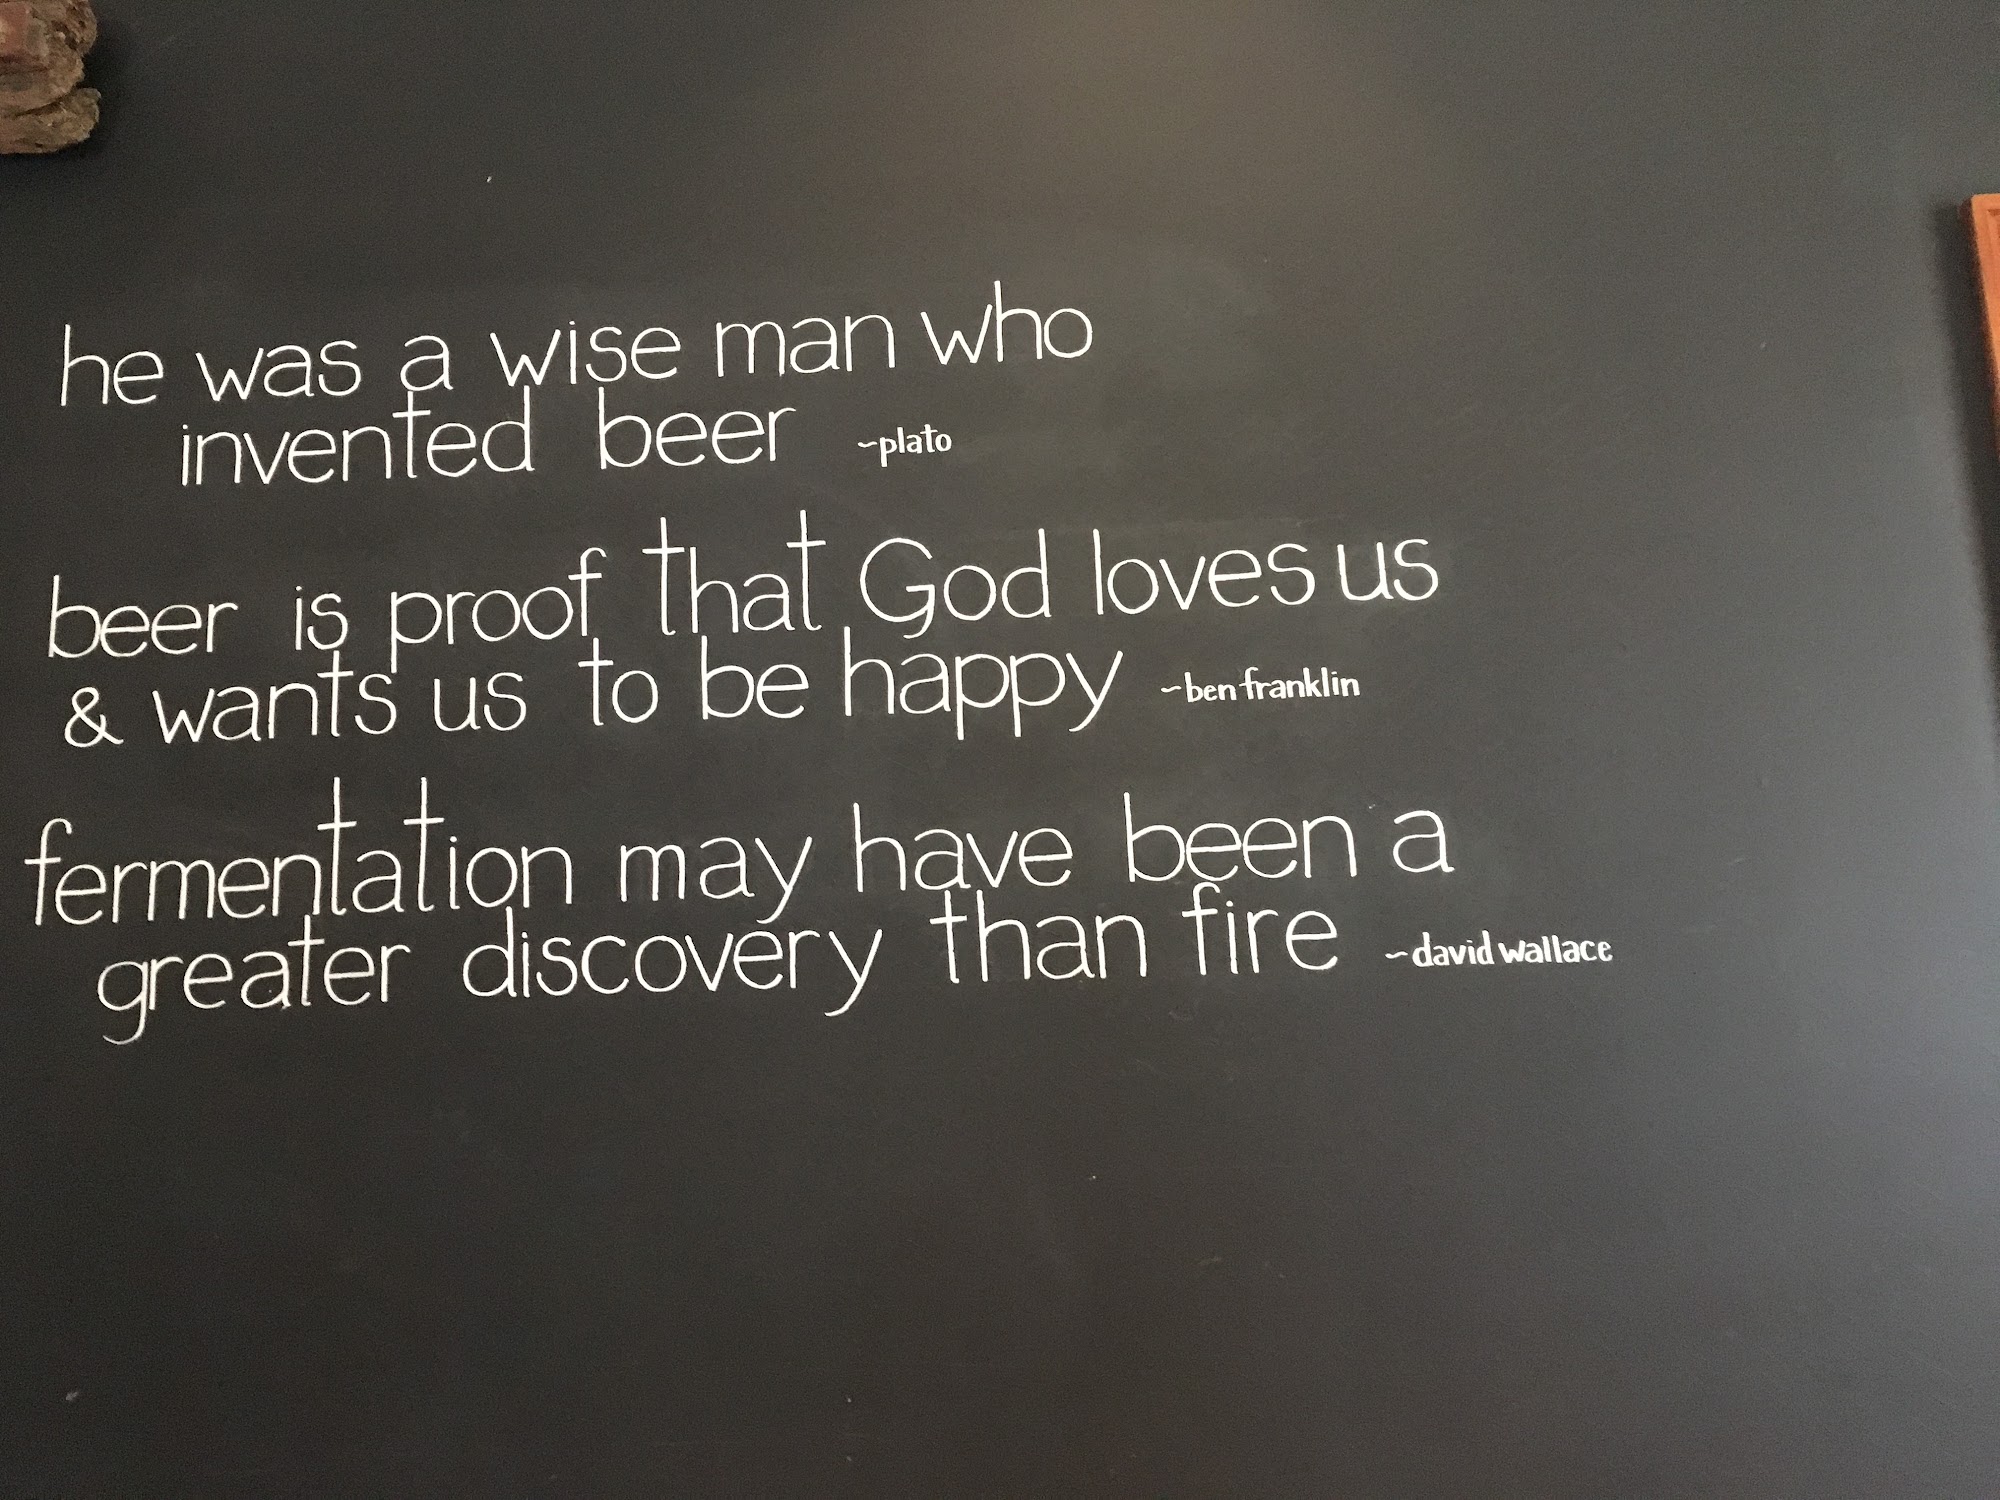 he was a wise man who
invented beer ~plato
beer is proof that God loves us
& wants us to be happy ~ben franklin
fermentation may have been a
greater discovery than fire ~david wallace